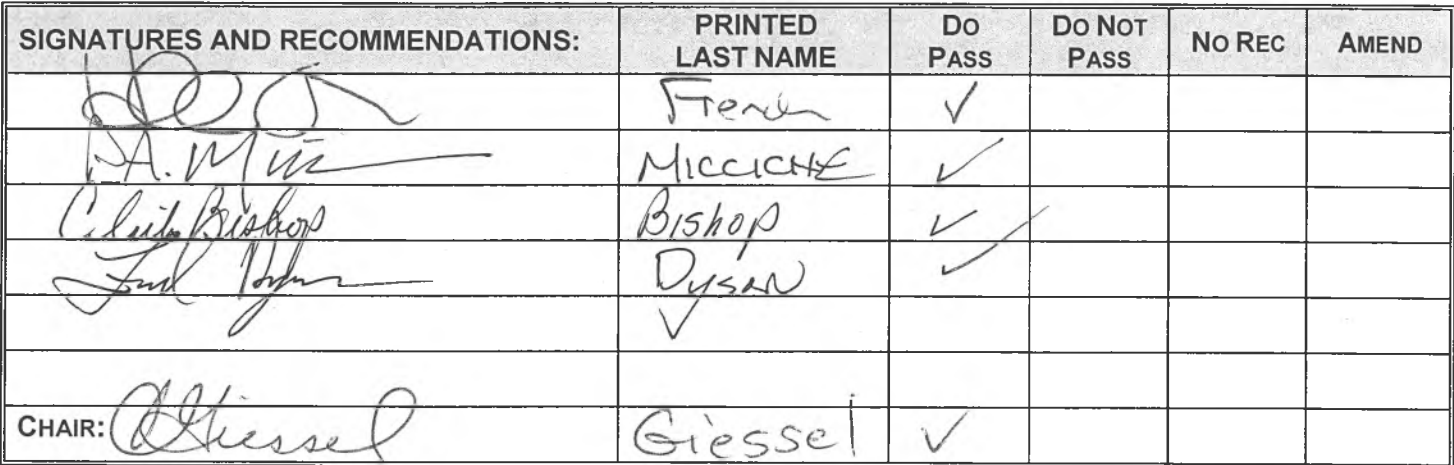 SIGNATURES AND RECOMMENDATIONS: PRINTED LAST NAME DO PASS DO NOT PASS NO REC AMEND
French ✓
P.A. Micciche MICCICHE ✓
Bishop Bishop ✓
Fred Dyson Dyson ✓
✓
CHAIR: CGiessel Giessel ✓